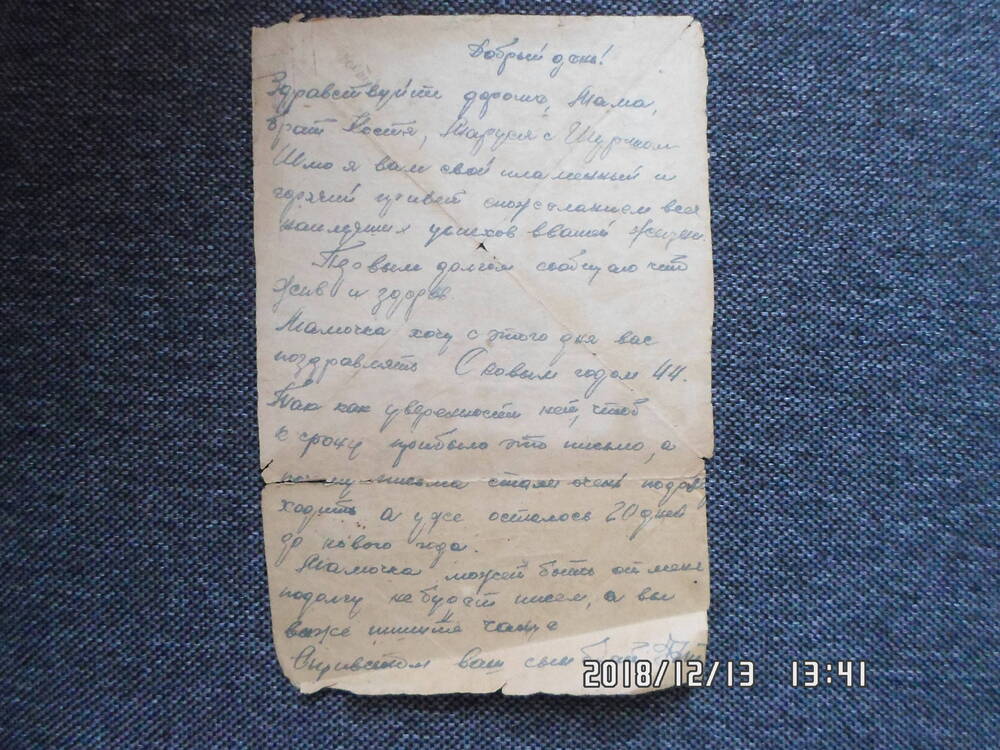 Добрый день!
Здравствуйте дорогие, Мама,
брат Костя, Маруся с Шуриком
Шлю я вам свой пламенный и
горячий привет спожеланием всех
наилучших успехов ввашей жизни.
Первым долгом сообщаю что
жив и здоров.
Мамочка хочу с этого дня вас
поздравлять С новым годом 44.
Так как уверенности нет, чтоб
к сроку прибыло это письмо, а
письма стали очень подолгу
ходить а уже осталось 20 дней
до нового года.
Мамочка может быть от меня
подолгу небудет писем, а вы
пишите чаще
Сприветом ваш сын
2018/12/13 13:41